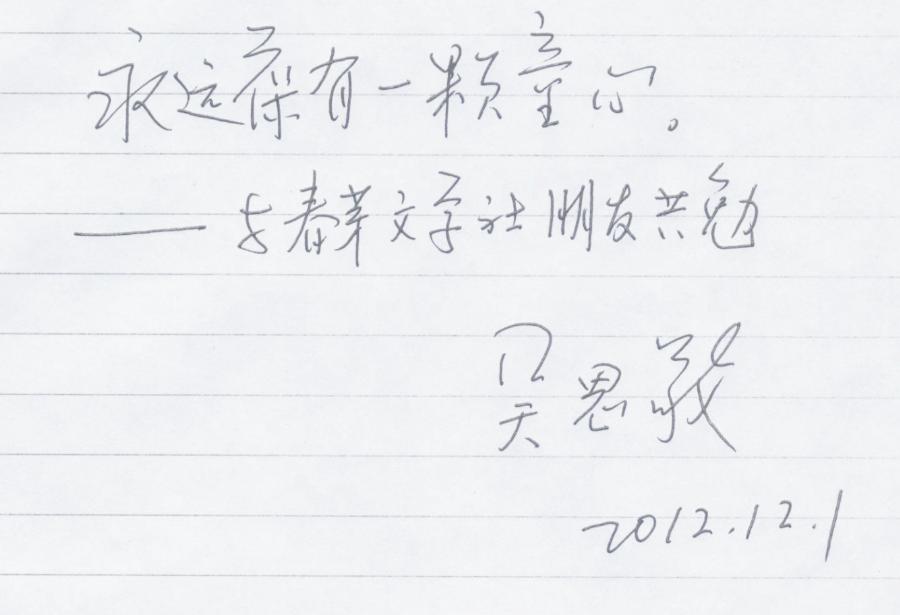 永远葆有一颗童心。
——与春芽文学社朋友共勉
吴思敬
2012.12.1